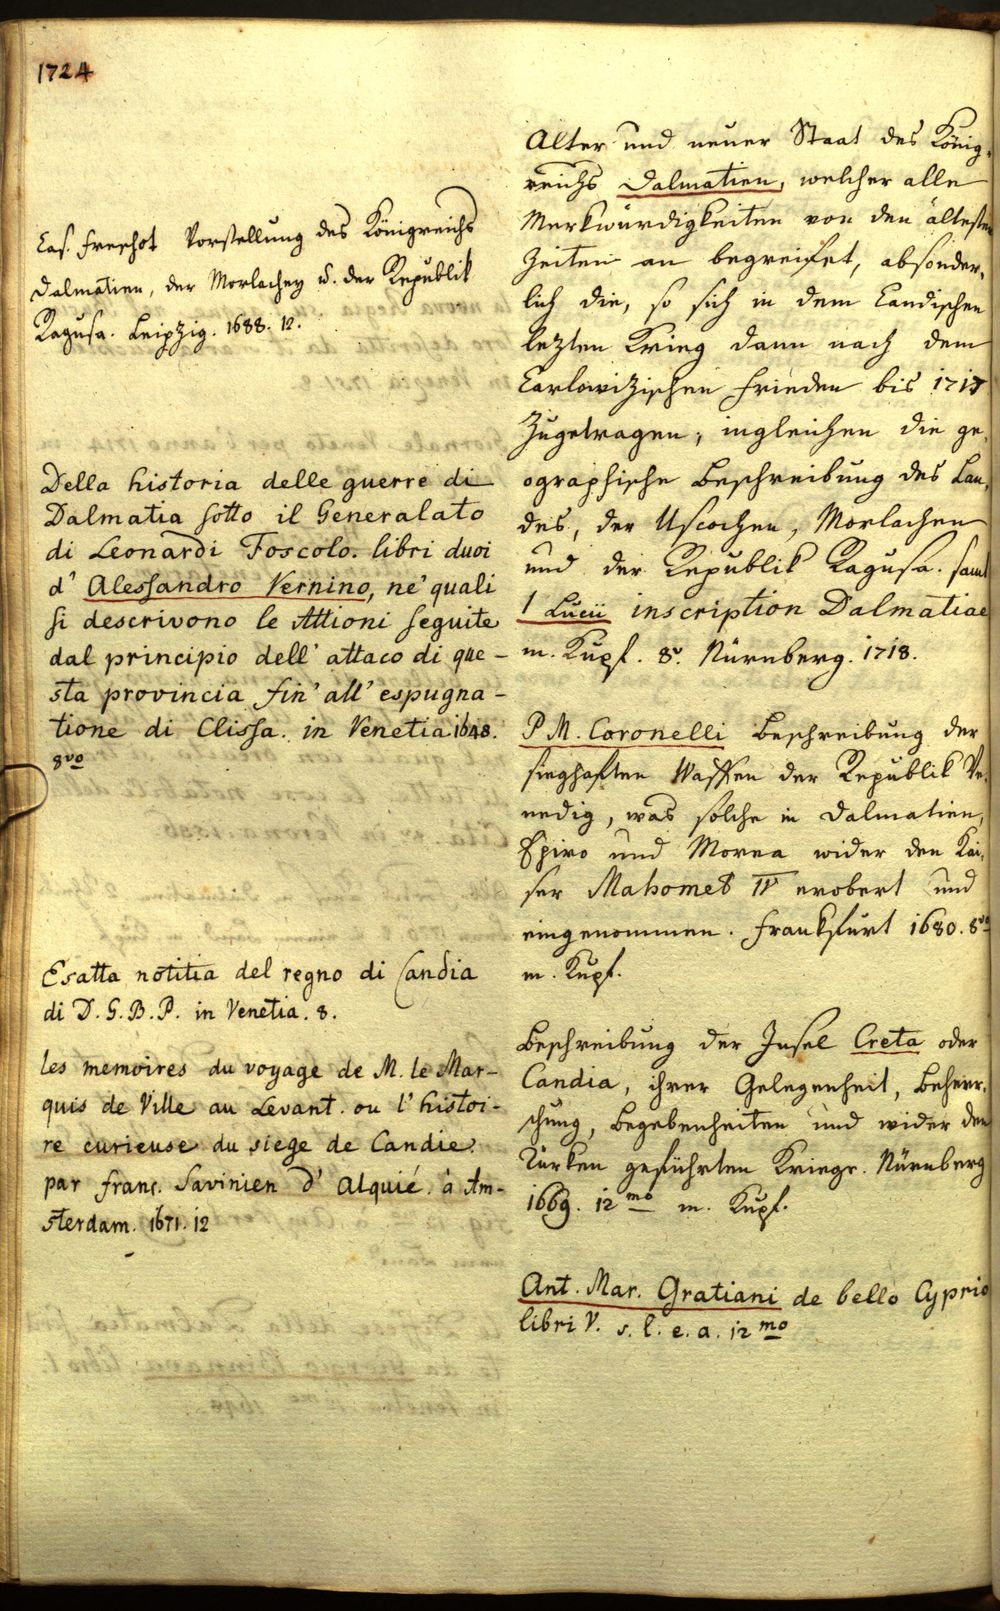 1724
Cas. Freschot Vorstellung des Königreichs
Dalmatien, der Morlachey u. der Republik
Ragusa. Leipzig. 1688. 12.
Della historia delle guerre di
Dalmatia sotto il Generalato
di Leonardi Foscolo. libri duoi
d' Alessandro Vernino, ne' quali
si descrivono le Attioni seguite
dal principio dell' attaco di que-
sta provincia fin' all' espugna-
tione di Clissa. in Venetia 1648.
8vo
Esatta notitia del regno di Candia
di D. G. B. P. in Venetia. 8.
Les memoires du voyage de M. le Mar-
quis de Ville au Levant. ou l' histoi-
re curieuse du siege de Candie.
par franç. Savinien d' Alquié. à Am-
sterdam. 1671. 12
Alter und neuer Staat des König-
reichs Dalmatien, welcher alle
Merkwürdigkeiten von den ältesten
Zeiten an begreifet, absonder-
lich die, so sich in dem Candischen
letzten Krieg dann nach dem
Carlowizischen Frieden bis 1717
zugetragen, ingleichen die ge-
ographische Beschreibung des Lan-
des, der Uscochen, Morlachen
und der Republik Ragusa. samt
I Lucii inscription Dalmatiae
m. Kupf. 8v. Nürnberg. 1718.
P M. Coronelli Beschreibung der
sieghaften Waffen der Republik Ve-
nedig, was solche in Dalmatien,
Epiro und Morea wider den Kai-
ser Mahomet IV erobert und
eingenommen. Frankfurt 1680. 8vo
m. Kupf.
Beschreibung der Insel Creta oder
Candia, ihrer Gelegenheit, Beherr-
schung, Begebenheiten und wider den
Türken geführten Kriege. Nürnberg
1669. 12mo m. Kupf.
Ant. Mar. Gratiani de bello Cyprio
libri V. s. l. e. a. 12mo